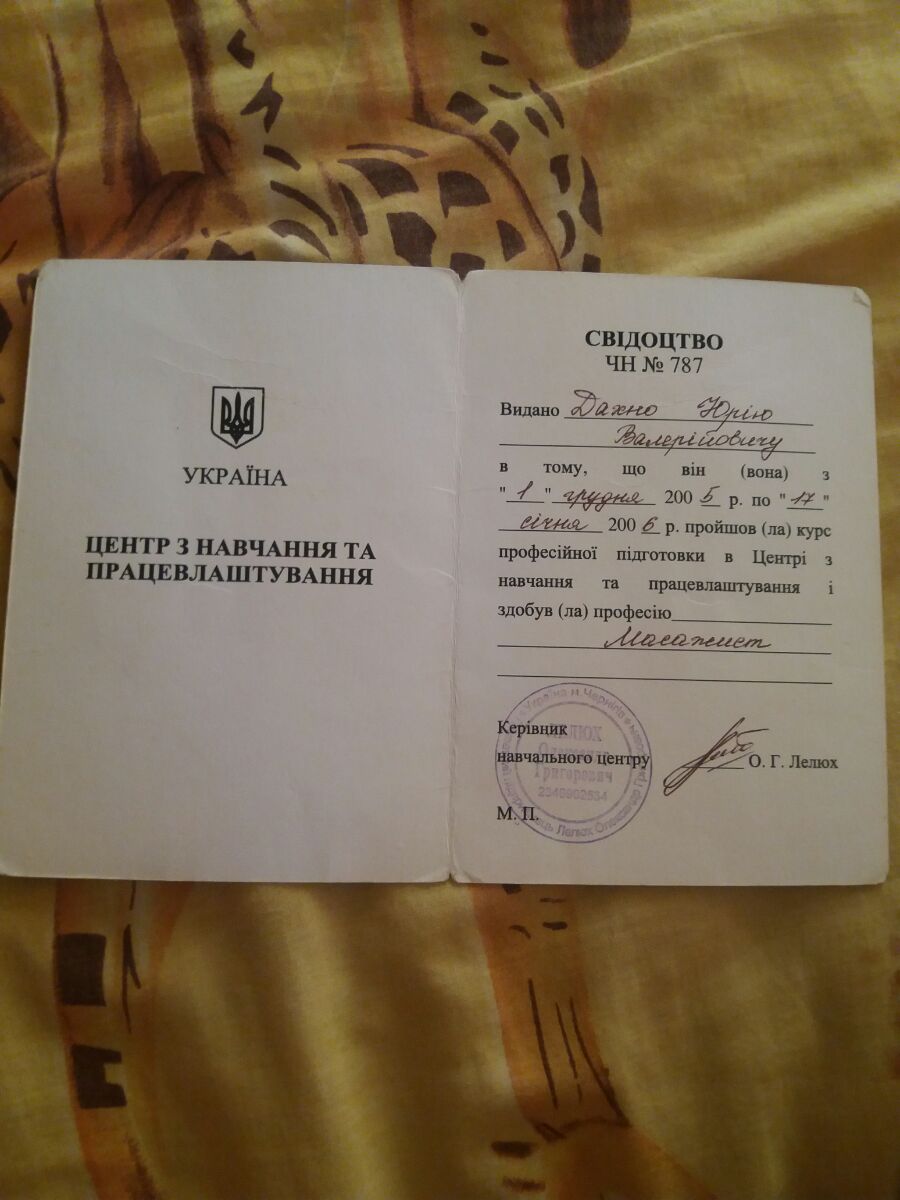 УКРАЇНА
ЦЕНТР З НАВЧАННЯ ТА
ПРАЦЕВЛАШТУВАННЯ
СВІДОЦТВО
ЧН № 787
Видано Дахно Юрію
Валерійовичу
в тому, що він (вона) з
"1" грудня 2005 р. по "17"
січня 2006 р. пройшов (ла) курс
професійної підготовки в Центрі з
навчання та працевлаштування і
здобув (ла) професію
Масажист
Керівник
навчального центру О. Г. Лелюх
М. П.
Україна м. Чернігів
ЛЕЛЮХ
Олександр
Григорович
2349902534
Лелюх Олександр